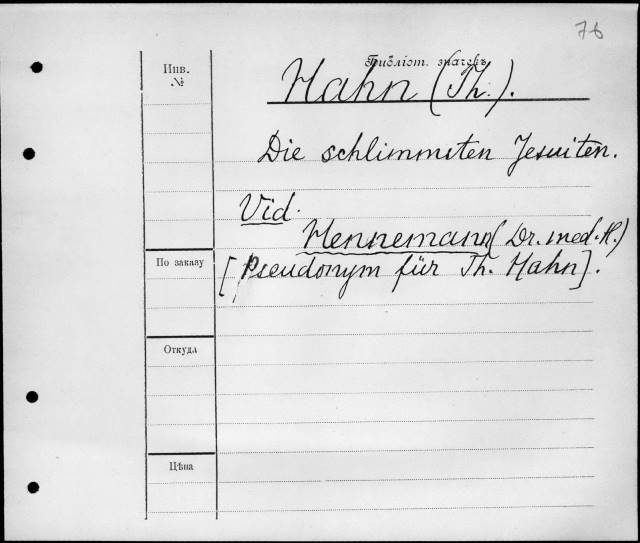 76
Библіот. значекъ
Инв.
№
Hahn (Th.).
Die schlimmsten Jesuiten.
Vid.
Hennemann (Dr. med. H.)
По заказу
[Pseudonym für Th. Hahn].
Откуда
Цѣна